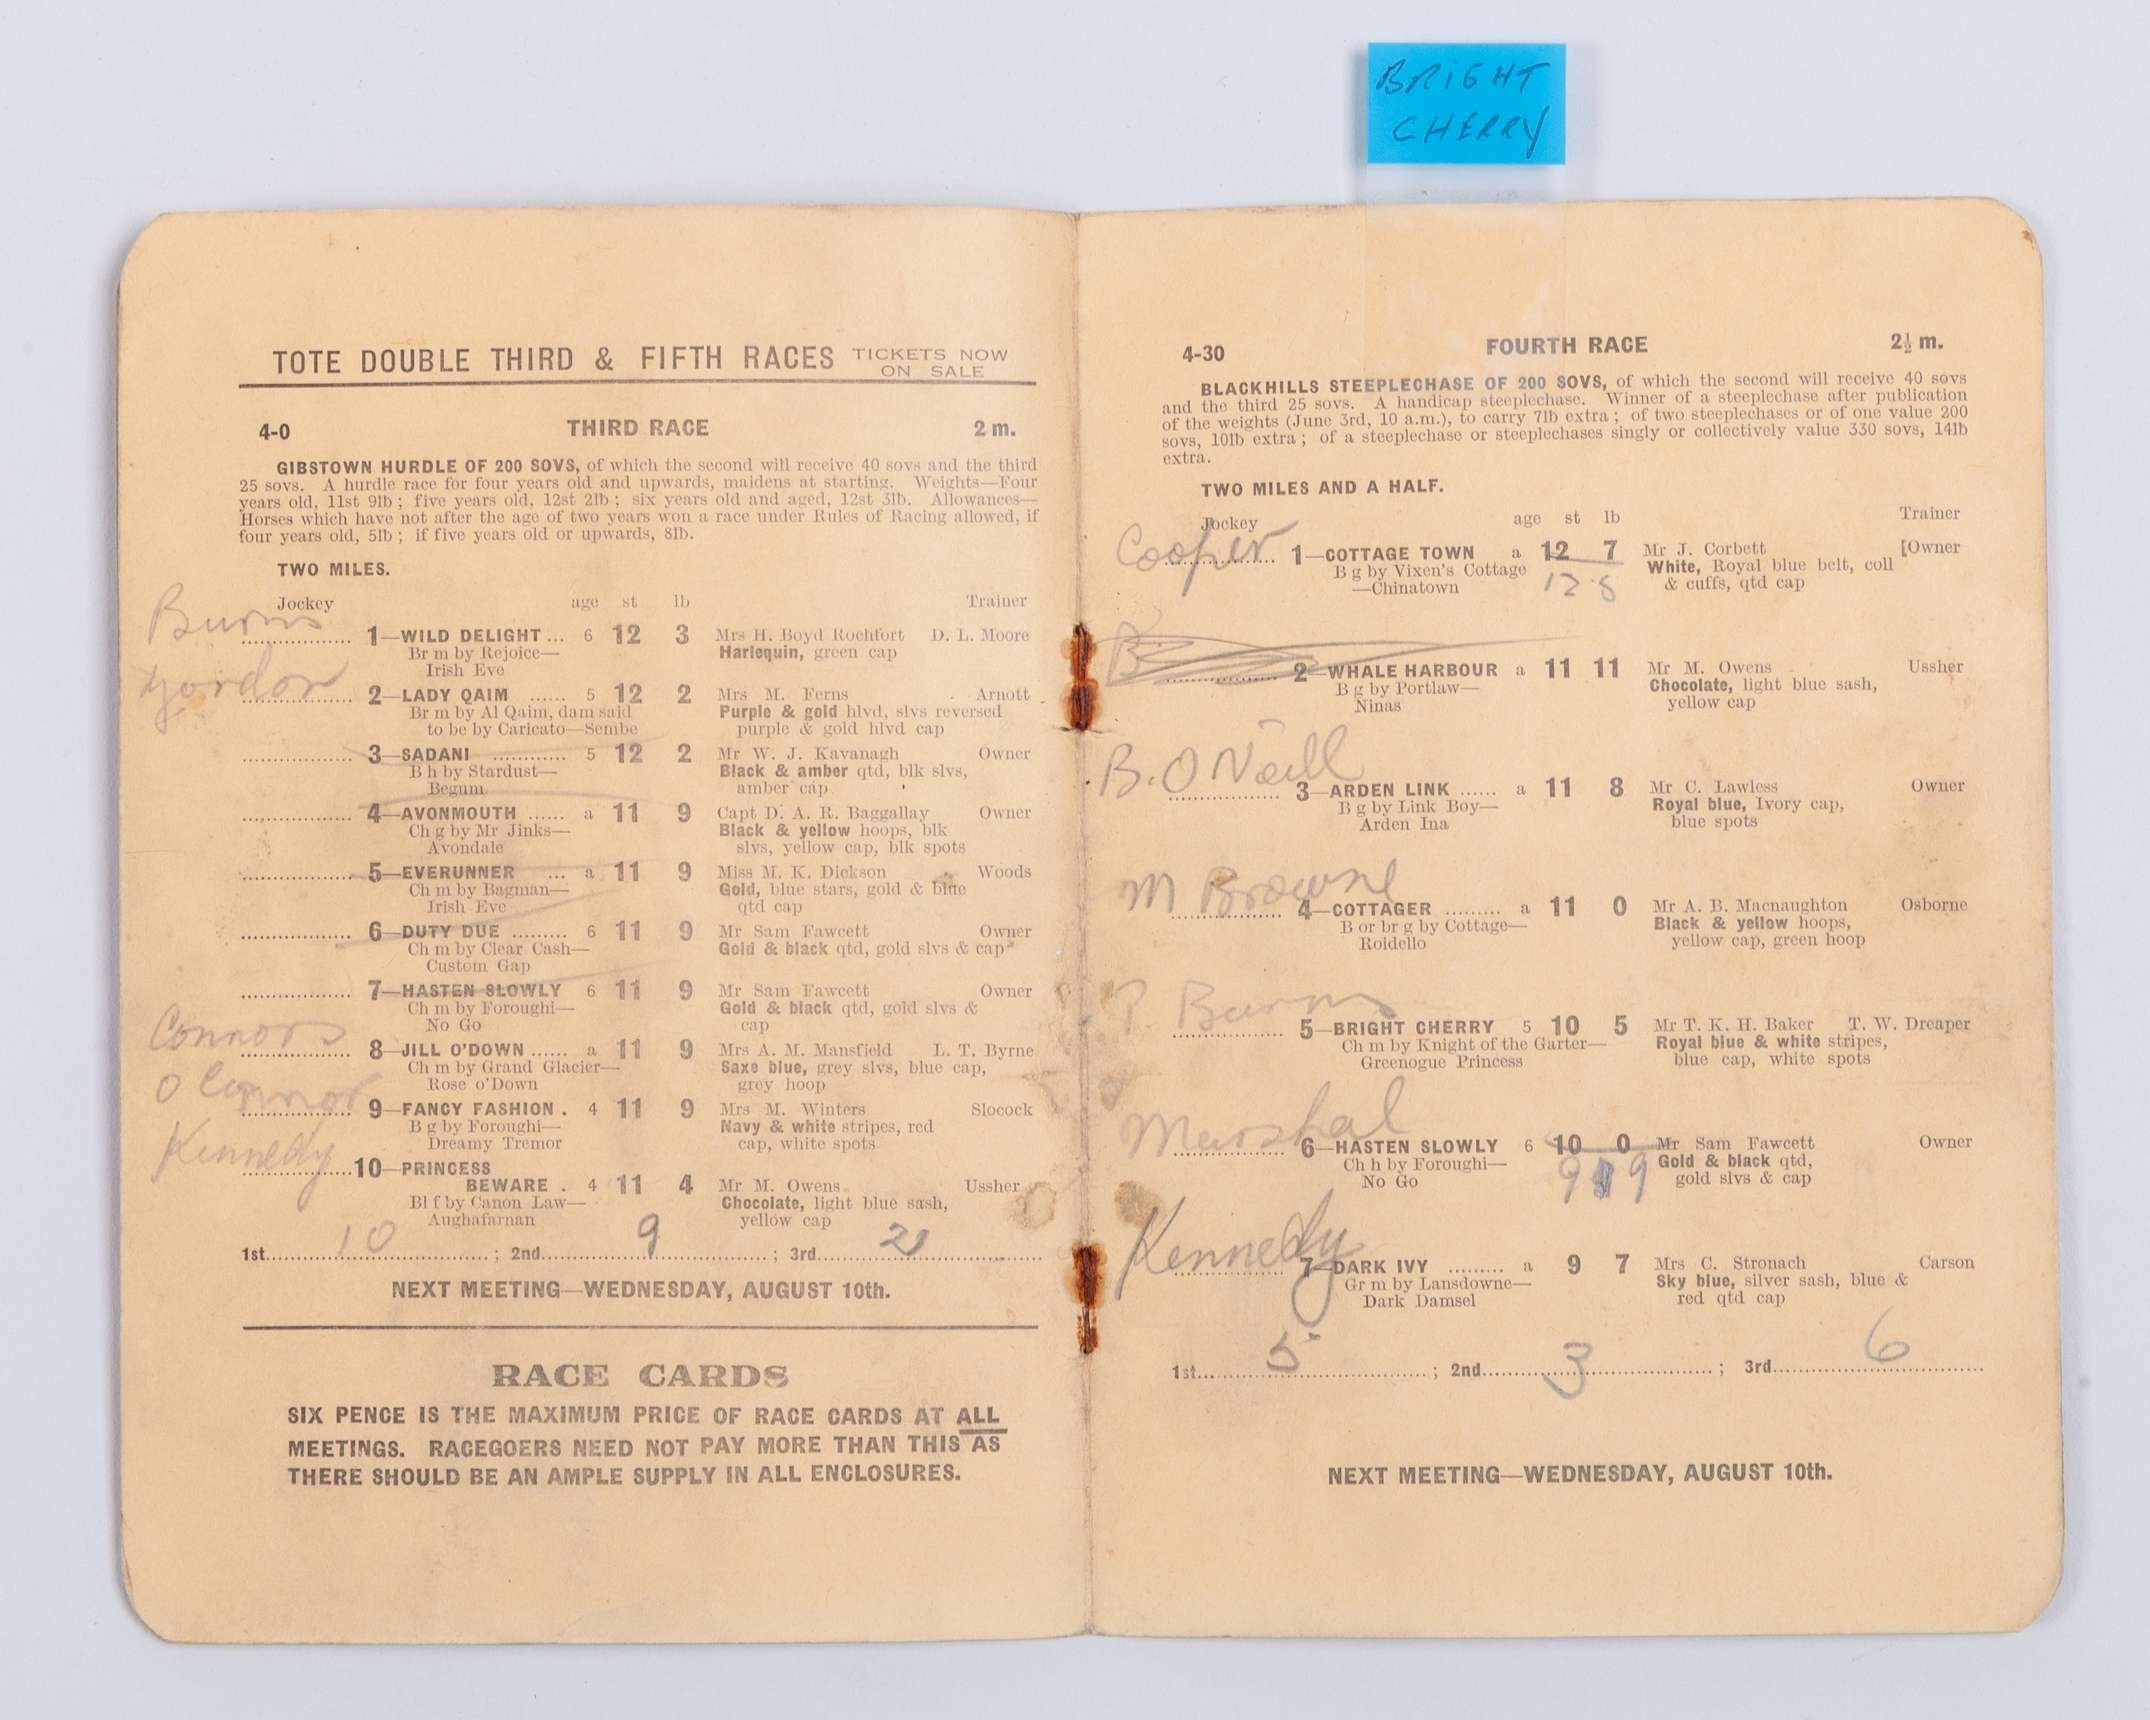 BRIGHT
CHERRY
TOTE DOUBLE THIRD & FIFTH RACES TICKETS NOW
ON SALE
4-0 THIRD RACE 2 m.
GIBSTOWN HURDLE OF 200 SOVS, of which the second will receive 40 sovs and the third
25 sovs. A hurdle race for four years old and upwards, maidens at starting. Weights—Four
years old, 11st 9lb; five years old, 12st 2lb; six years old and aged, 12st 3lb. Allowances—
Horses which have not after the age of two years won a race under Rules of Racing allowed, if
four years old, 5lb; if five years old or upwards, 8lb.
TWO MILES.
Jockey age st lb Trainer
Burns
1—WILD DELIGHT ... 6 12 3 Mrs H. Boyd Rochfort D. L. Moore
Br m by Rejoice— Harlequin, green cap
Irish Eve
Gordon
2—LADY QAIM ...... 5 12 2 Mrs M. Ferns Arnott
Br m by Al Qaim, dam said Purple & gold hlvd, slvs reversed
to be by Caricato—Sembe purple & gold hlvd cap
3—SADANI ............ 5 12 2 Mr W. J. Kavanagh Owner
B h by Stardust— Black & amber qtd, blk slvs,
Begum amber cap
4—AVONMOUTH ...... a 11 9 Capt D. A. R. Baggallay Owner
Ch g by Mr Jinks— Black & yellow hoops, blk
Avondale slvs, yellow cap, blk spots
5—EVERUNNER ... a 11 9 Miss M. K. Dickson Woods
Ch m by Bagman— Gold, blue stars, gold & blue
Irish Eve qtd cap
6—DUTY DUE ......... 6 11 9 Mr Sam Fawcett Owner
Ch m by Clear Cash— Gold & black qtd, gold slvs & cap
Custom Gap
7—HASTEN SLOWLY 6 11 9 Mr Sam Fawcett Owner
Ch m by Foroughi— Gold & black qtd, gold slvs &
No Go cap
Connors
8—JILL O'DOWN ...... a 11 9 Mrs A. M. Mansfield L. T. Byrne
Ch m by Grand Glacier— Saxe blue, grey slvs, blue cap,
Rose o'Down grey hoop
O Connor
9—FANCY FASHION . 4 11 9 Mrs M. Winters Slocock
B g by Foroughi— Navy & white stripes, red
Dreamy Tremor cap, white spots
Kennedy
10—PRINCESS
BEWARE . 4 11 4 Mr M. Owens Ussher
Bl f by Canon Law— Chocolate, light blue sash,
Aughafarnan yellow cap
1st 10 ; 2nd 9 ; 3rd 2
NEXT MEETING—WEDNESDAY, AUGUST 10th.
RACE CARDS
SIX PENCE IS THE MAXIMUM PRICE OF RACE CARDS AT ALL
MEETINGS. RACEGOERS NEED NOT PAY MORE THAN THIS AS
THERE SHOULD BE AN AMPLE SUPPLY IN ALL ENCLOSURES.
4-30 FOURTH RACE 2½ m.
BLACKHILLS STEEPLECHASE OF 200 SOVS, of which the second will receive 40 sovs
and the third 25 sovs. A handicap steeplechase. Winner of a steeplechase after publication
of the weights (June 3rd, 10 a.m.), to carry 7lb extra; of two steeplechases or of one value 200
sovs, 10lb extra; of a steeplechase or steeplechases singly or collectively value 330 sovs, 14lb
extra.
TWO MILES AND A HALF.
Jockey age st lb Trainer
Cooper
1—COTTAGE TOWN a 12 7 Mr J. Corbett [Owner
B g by Vixen's Cottage White, Royal blue belt, coll
—Chinatown 12.8 & cuffs, qtd cap
2—WHALE HARBOUR a 11 11 Mr M. Owens Ussher
B g by Portlaw— Chocolate, light blue sash,
Ninas yellow cap
B. O Neill
3—ARDEN LINK ...... a 11 8 Mr C. Lawless Owner
B g by Link Boy— Royal blue, Ivory cap,
Arden Ina blue spots
M Browne
4—COTTAGER ......... a 11 0 Mr A. B. Macnaughton Osborne
B or br g by Cottage— Black & yellow hoops,
Roidello yellow cap, green hoop
P. Burns
5—BRIGHT CHERRY 5 10 5 Mr T. K. H. Baker T. W. Dreaper
Ch m by Knight of the Garter— Royal blue & white stripes,
Greenogue Princess blue cap, white spots
Marshal
6—HASTEN SLOWLY 6 10 0 Mr Sam Fawcett Owner
Ch h by Foroughi— Gold & black qtd,
No Go 9 9 gold slvs & cap
Kennedy
7—DARK IVY ......... a 9 7 Mrs C. Stronach Carson
Gr m by Lansdowne— Sky blue, silver sash, blue &
Dark Damsel red qtd cap
1st 5 ; 2nd 3 ; 3rd 6
NEXT MEETING—WEDNESDAY, AUGUST 10th.